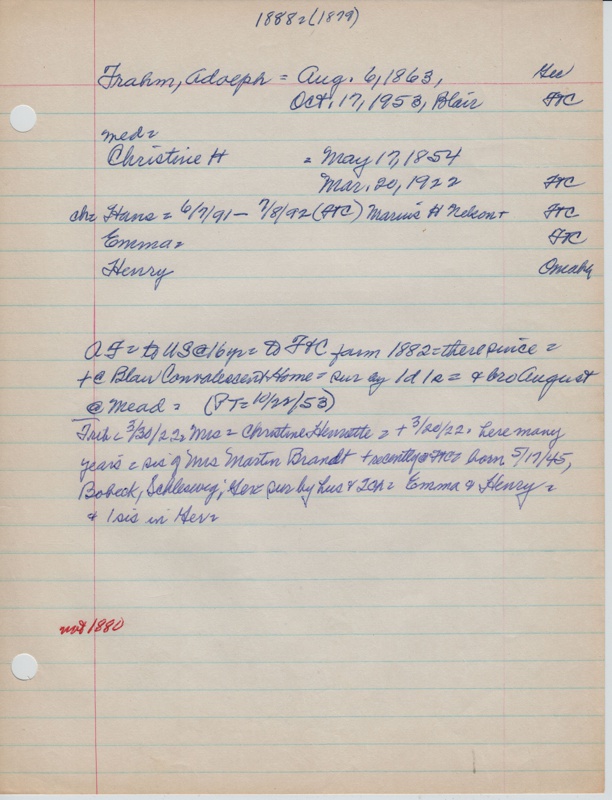 1888=(1879)
Frahm, Adolph = Aug. 6, 1863, Ger
Oct. 17, 1953, Blair FtC
med=
Christine H = May 17, 1854
Mar. 20, 1922 FtC
ch= Hans = 6/7/91 - 7/8/92 (FtC) Marius H Nelson + FtC
Emma= FtC
Henry Omaha
AF = to US @ 16yr = to FtC farm 1882 = there since =
+ @ Blair Convalescent Home = sur by 1d 1s = & bro August
@ Mead = (PT = 10/22/53)
Trib = 3/30/22, Mrs = Christine Henrette = + 3/20/22. here many
years = sis of Mrs Martin Brandt + recently @ FtC = born 5/17/45,
Bobeck, Schleswig, Ger = sur by hus & 2ch = Emma & Henry =
& 1 sis in Ger =
not 1880